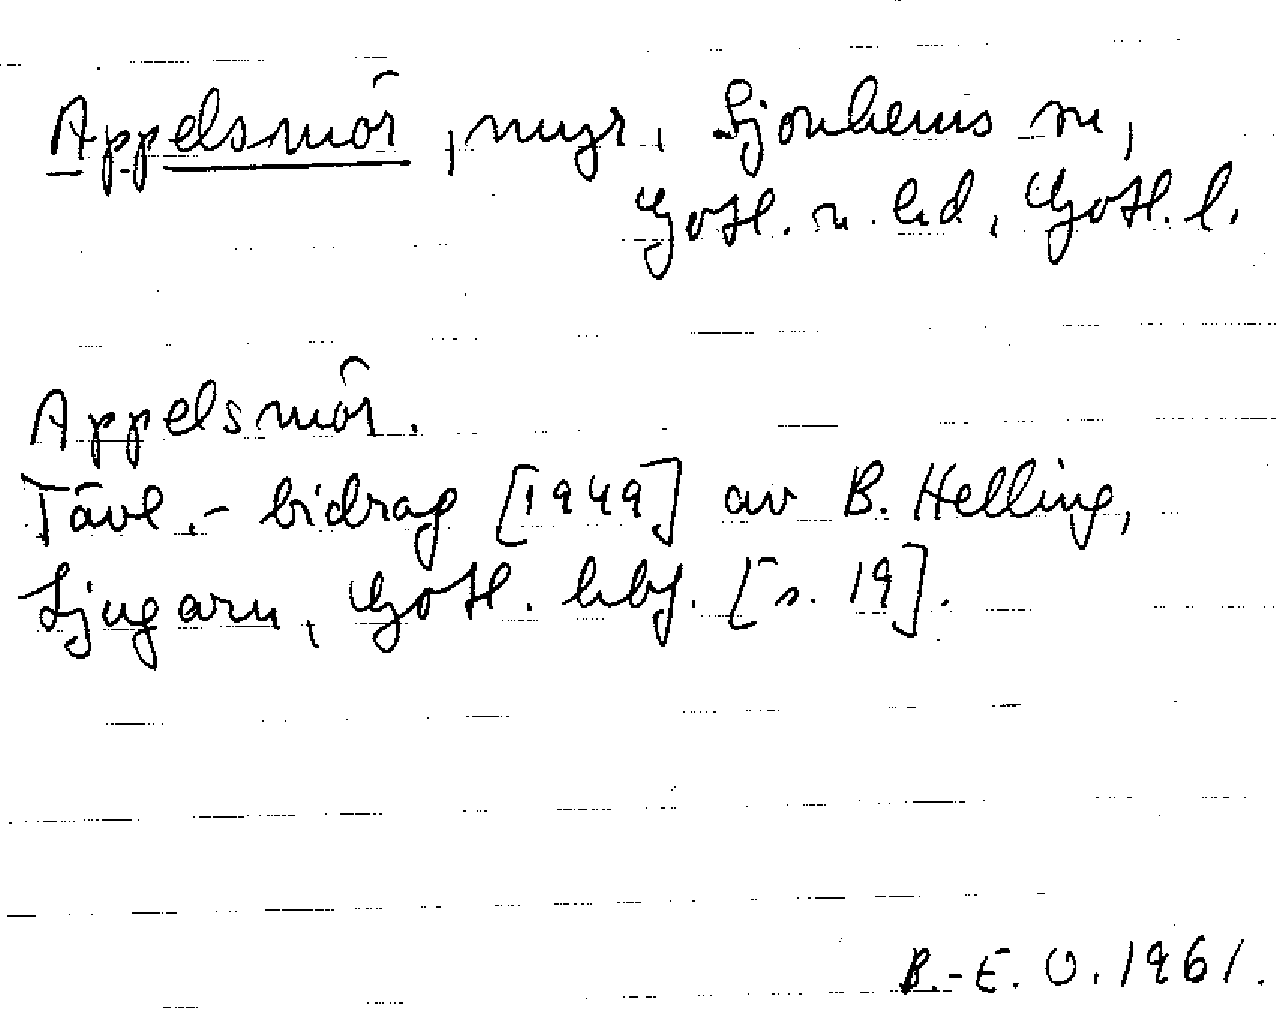 Appelsmôr, myr, Sjonhems sn,
Gotl. n. hd, Gotl. l.
Appelsmôr.
Tävl.-bidrag [1949] av B. Helling,
Ljugarn, Gotl. hbf. [s. 19].
B.-E. O. 1961.